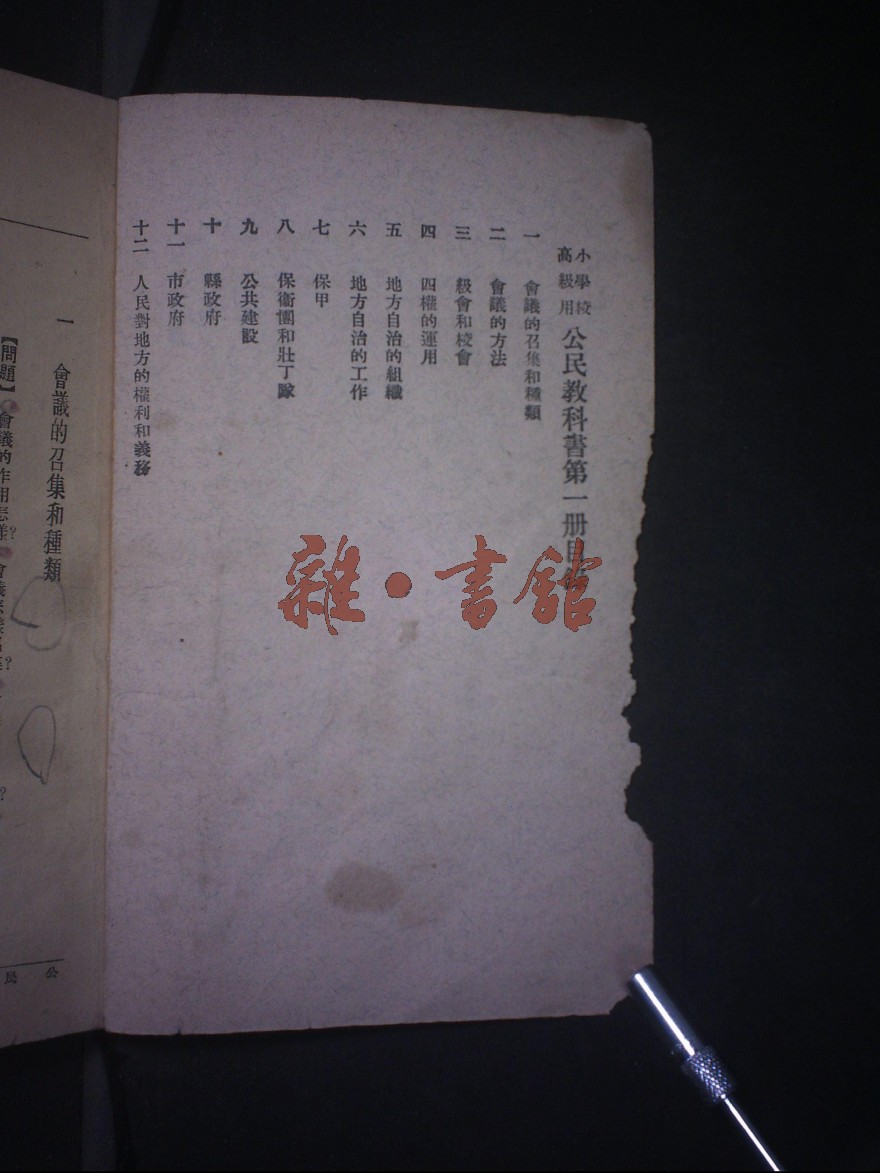 小學校
高級用
公民教科書第一册目
一 會議的召集和種類
二 會議的方法
三 級會和校會
四 四權的運用
五 地方自治的組織
六 地方自治的工作
七 保甲
八 保衞團和壯丁隊
九 公共建設
十 縣政府
十一 市政府
十二 人民對地方的權利和義務
雜·書館
一 會議的召集和種類
【問題】會議的作用怎樣?
公民